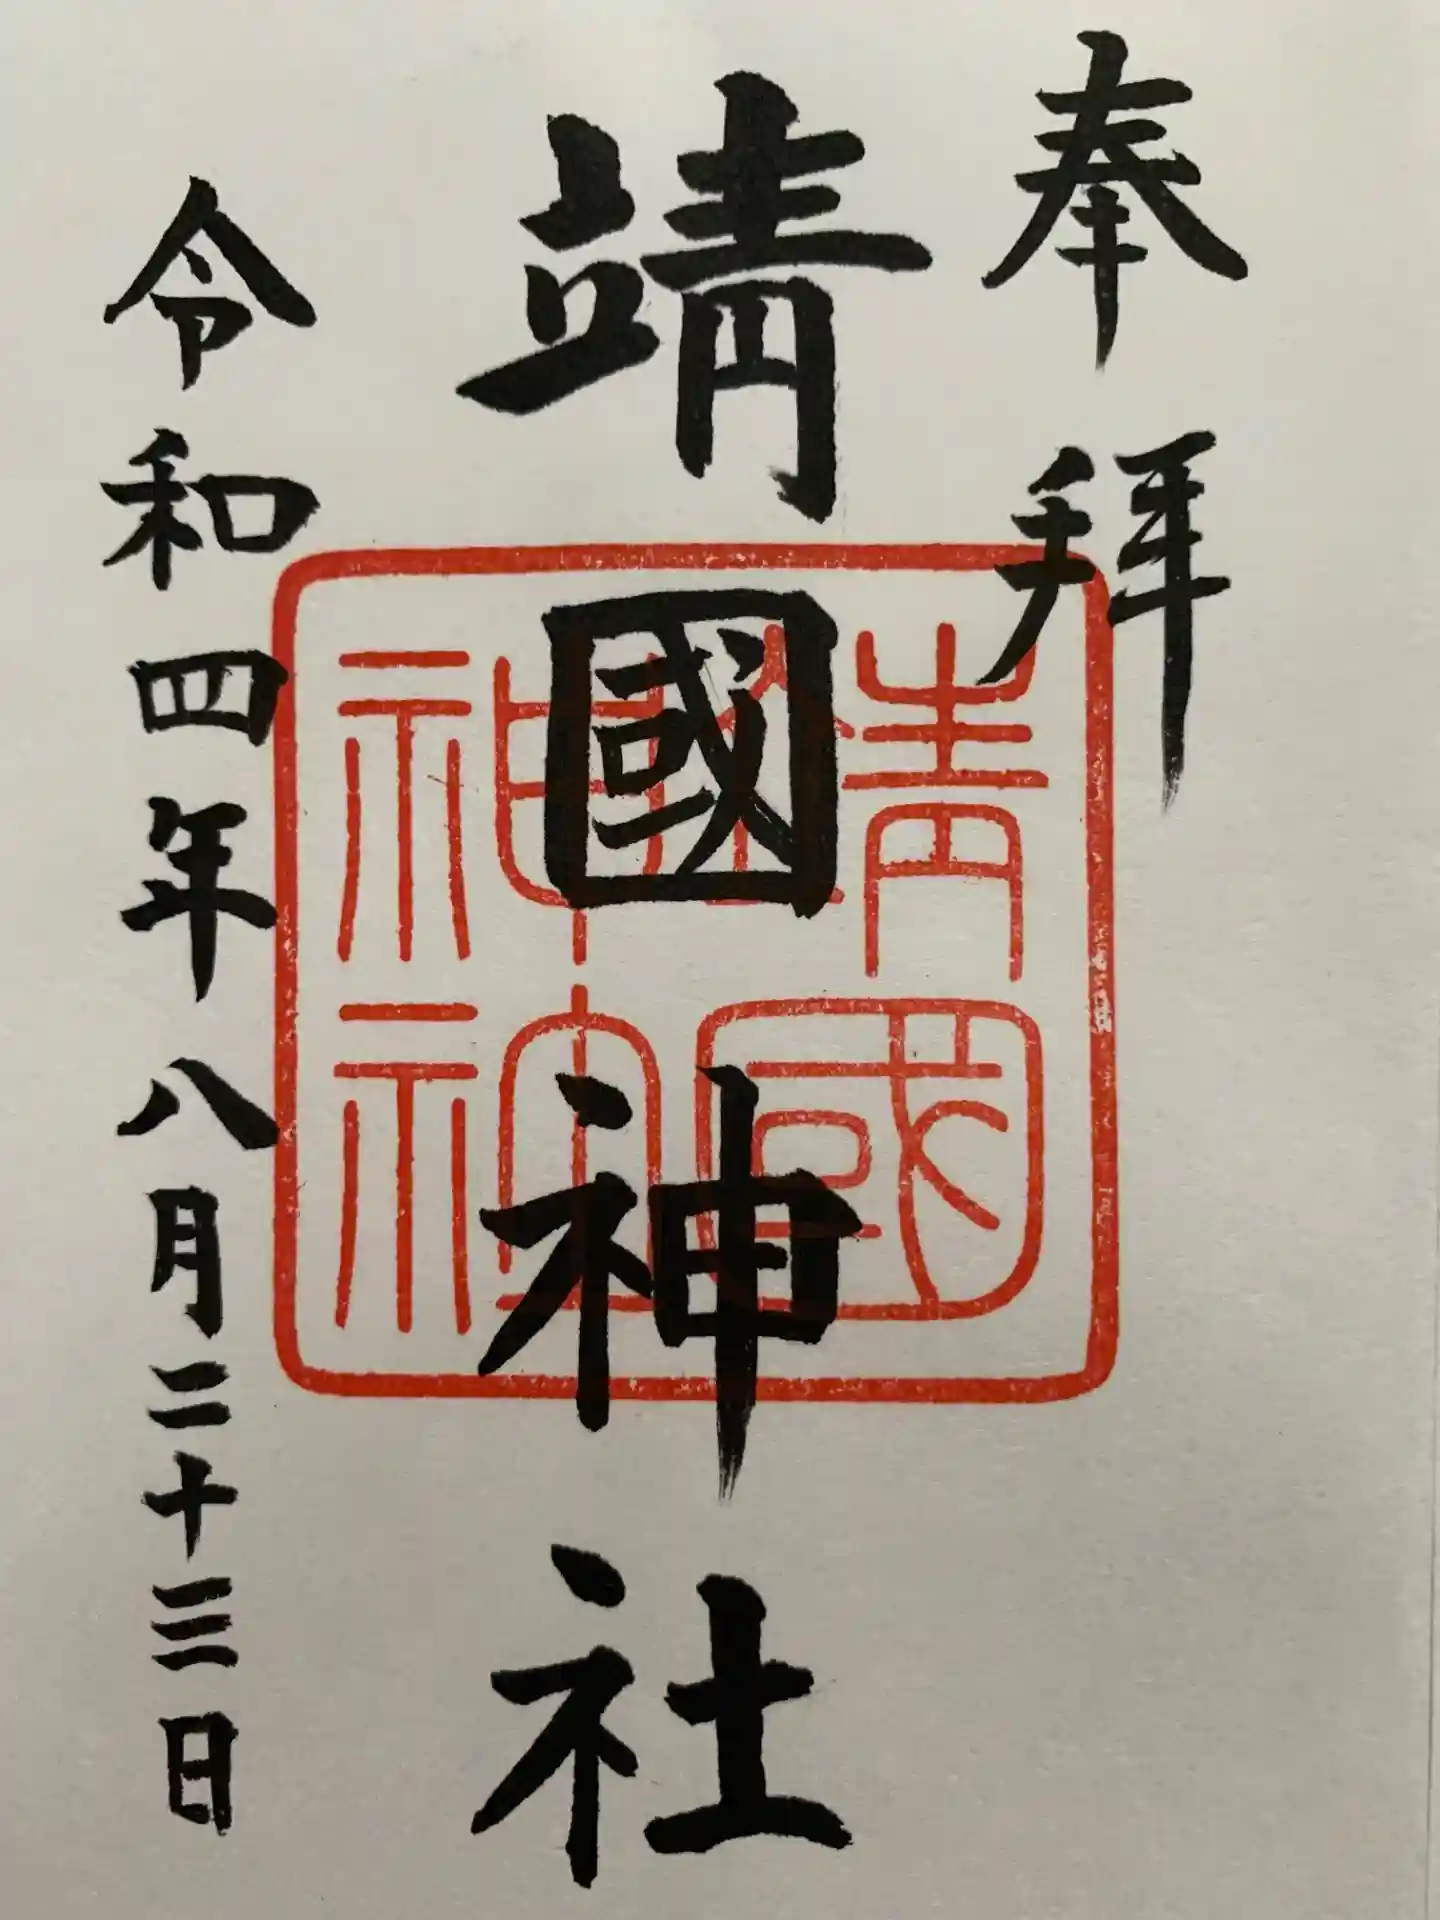 奉拝
靖國神社
靖國神社
令和四年八月二十三日